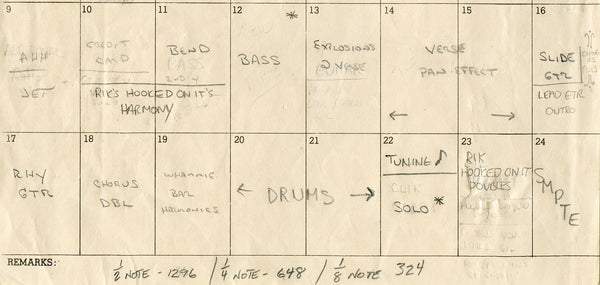 9
AHH
JET
10
CREDIT
CARD
11
BEND
BASS
2ND V
RIK'S HOOKED ON IT'S
HARMONY
12
*
BASS
13
EXPLOSIONS
2 VERSE
GUITAR
14
15
VERSE
PAN-EFFECT
← →
16
SLIDE
GTR
LEAD GTR
OUTRO
17
RHY
GTR
18
CHORUS
DBL
19
WHAMMIE
BAR
HARMONICS
20
21
← DRUMS →
22
TUNING ♪
CLIK
SOLO *
23
RIK
HOOKED ON IT
DOUBLES
24
SMPTE
REMARKS:
1/2 NOTE - 1296 / 1/4 NOTE - 648 / 1/8 NOTE 324